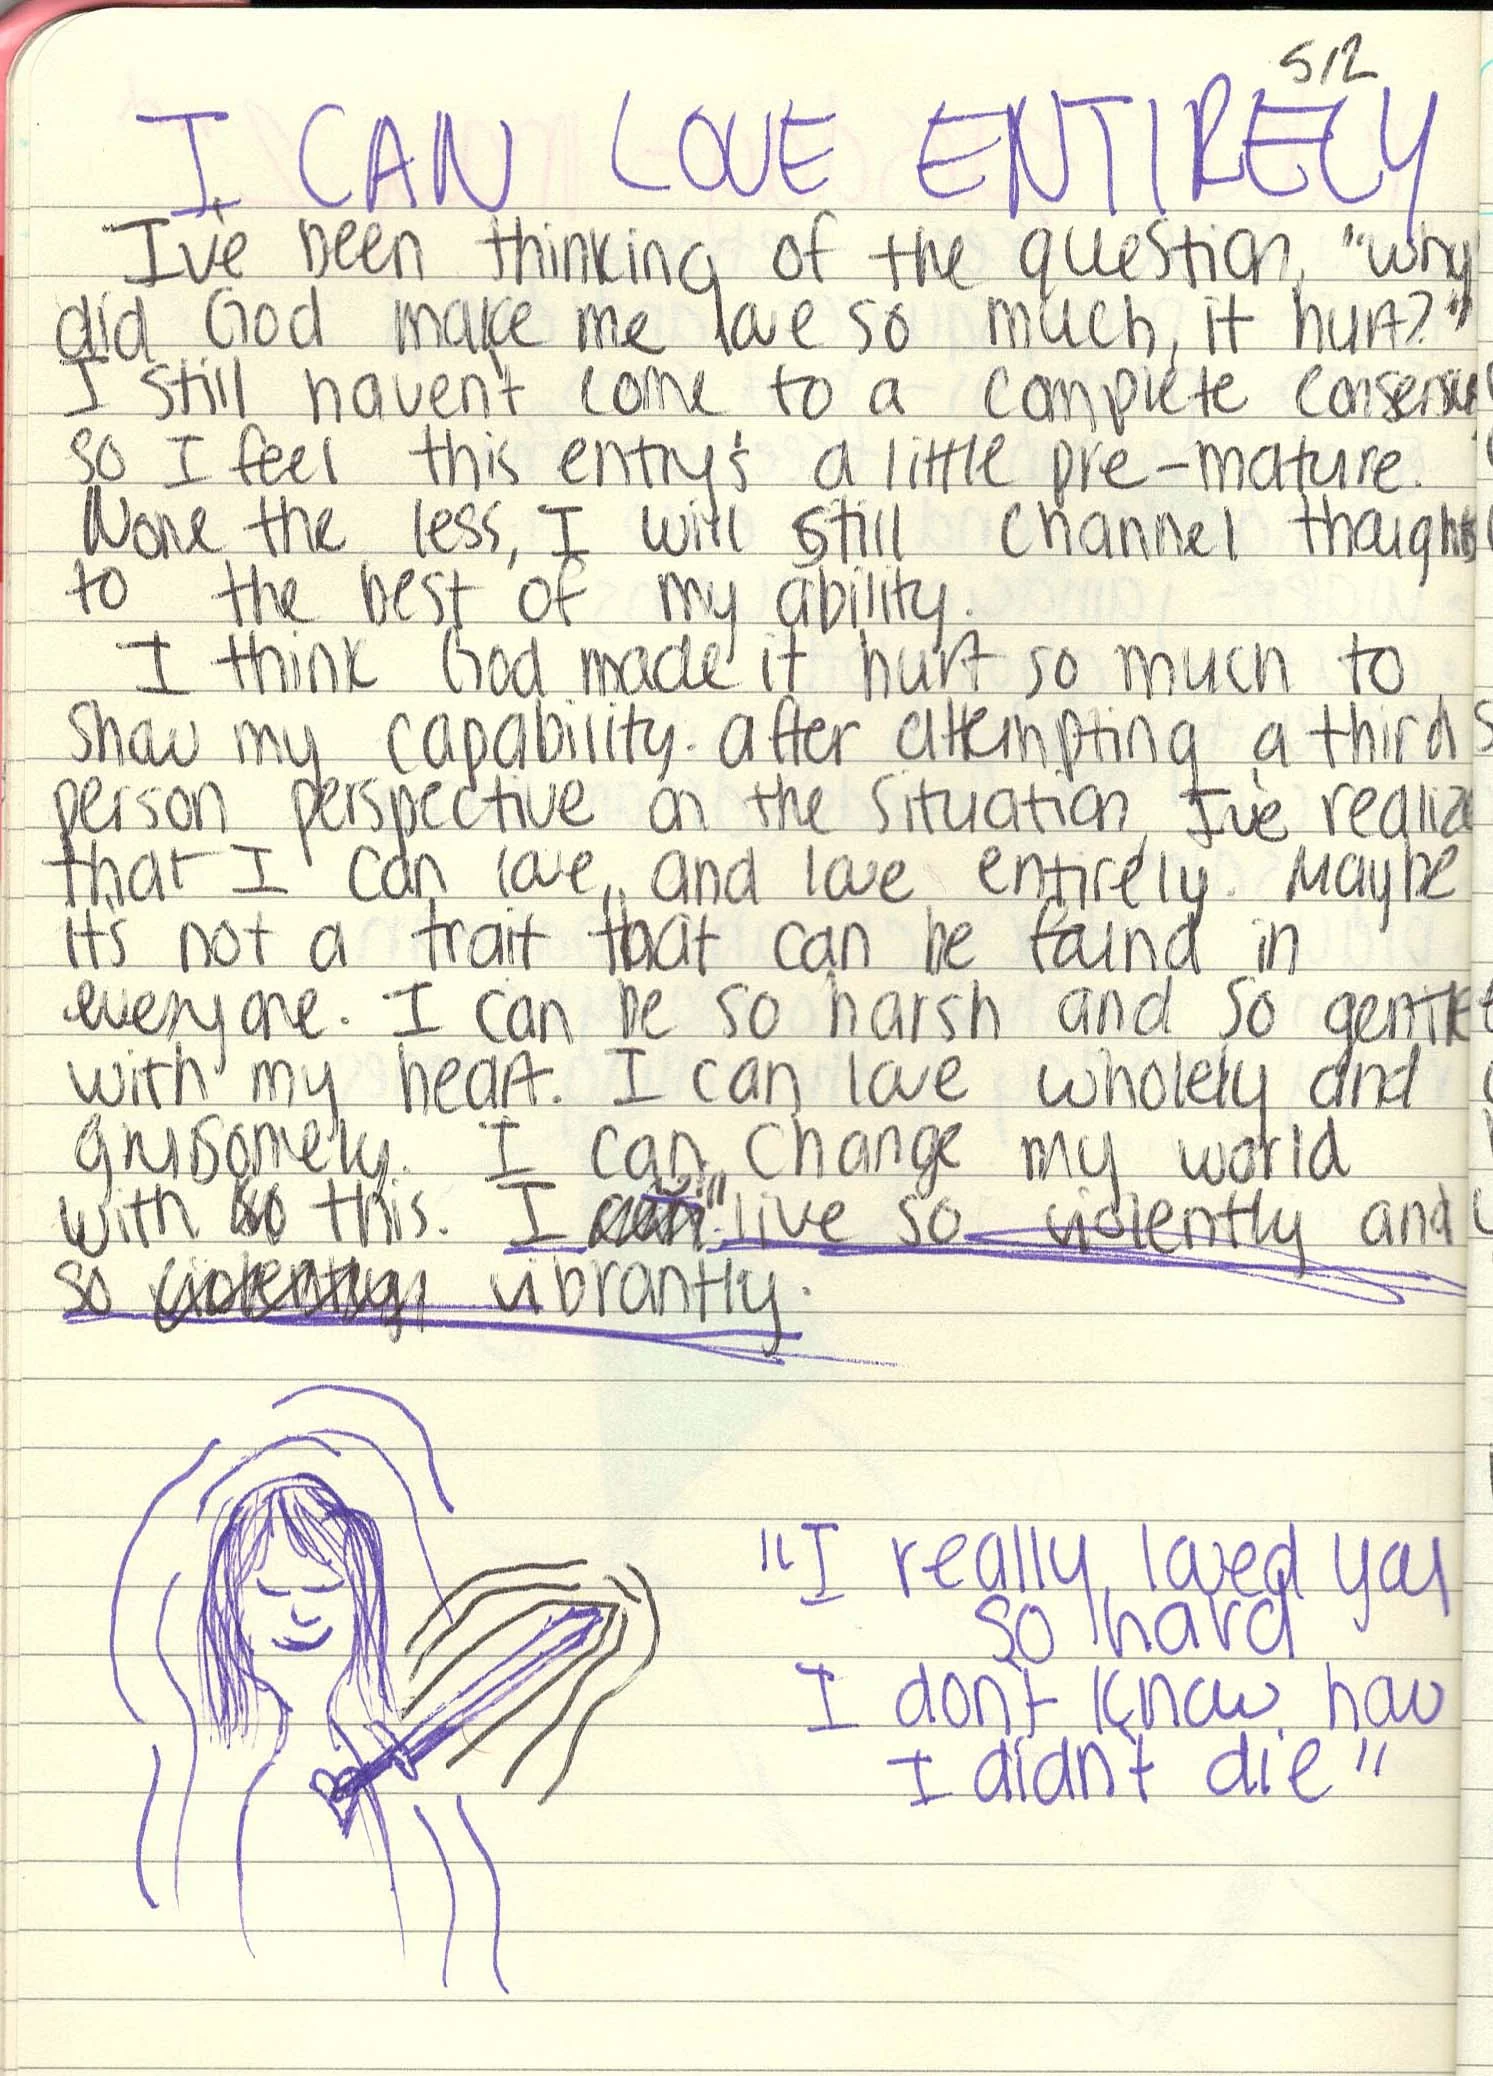 5/2
I CAN LOVE ENTIRELY
I've been thinking of the question, "why
did God make me love so much, it hurt?"
I still haven't come to a complete consensus
so I feel this entry's a little pre-mature.
None the less, I will still channel thoughts
to the best of my ability.
I think God made it hurt so much to
show my capability. after attempting a third
person perspective on the situation, I've realize
that I can love, and love entirely. Maybe
it's not a trait that can be found in
everyone. I can be so harsh and so gentle
with my heart. I can love wholely and
grusomely. I can change my world
with this. I live so violently and
so vibrantly.
"I really loved you
so hard
I don't know how
I didn't die"